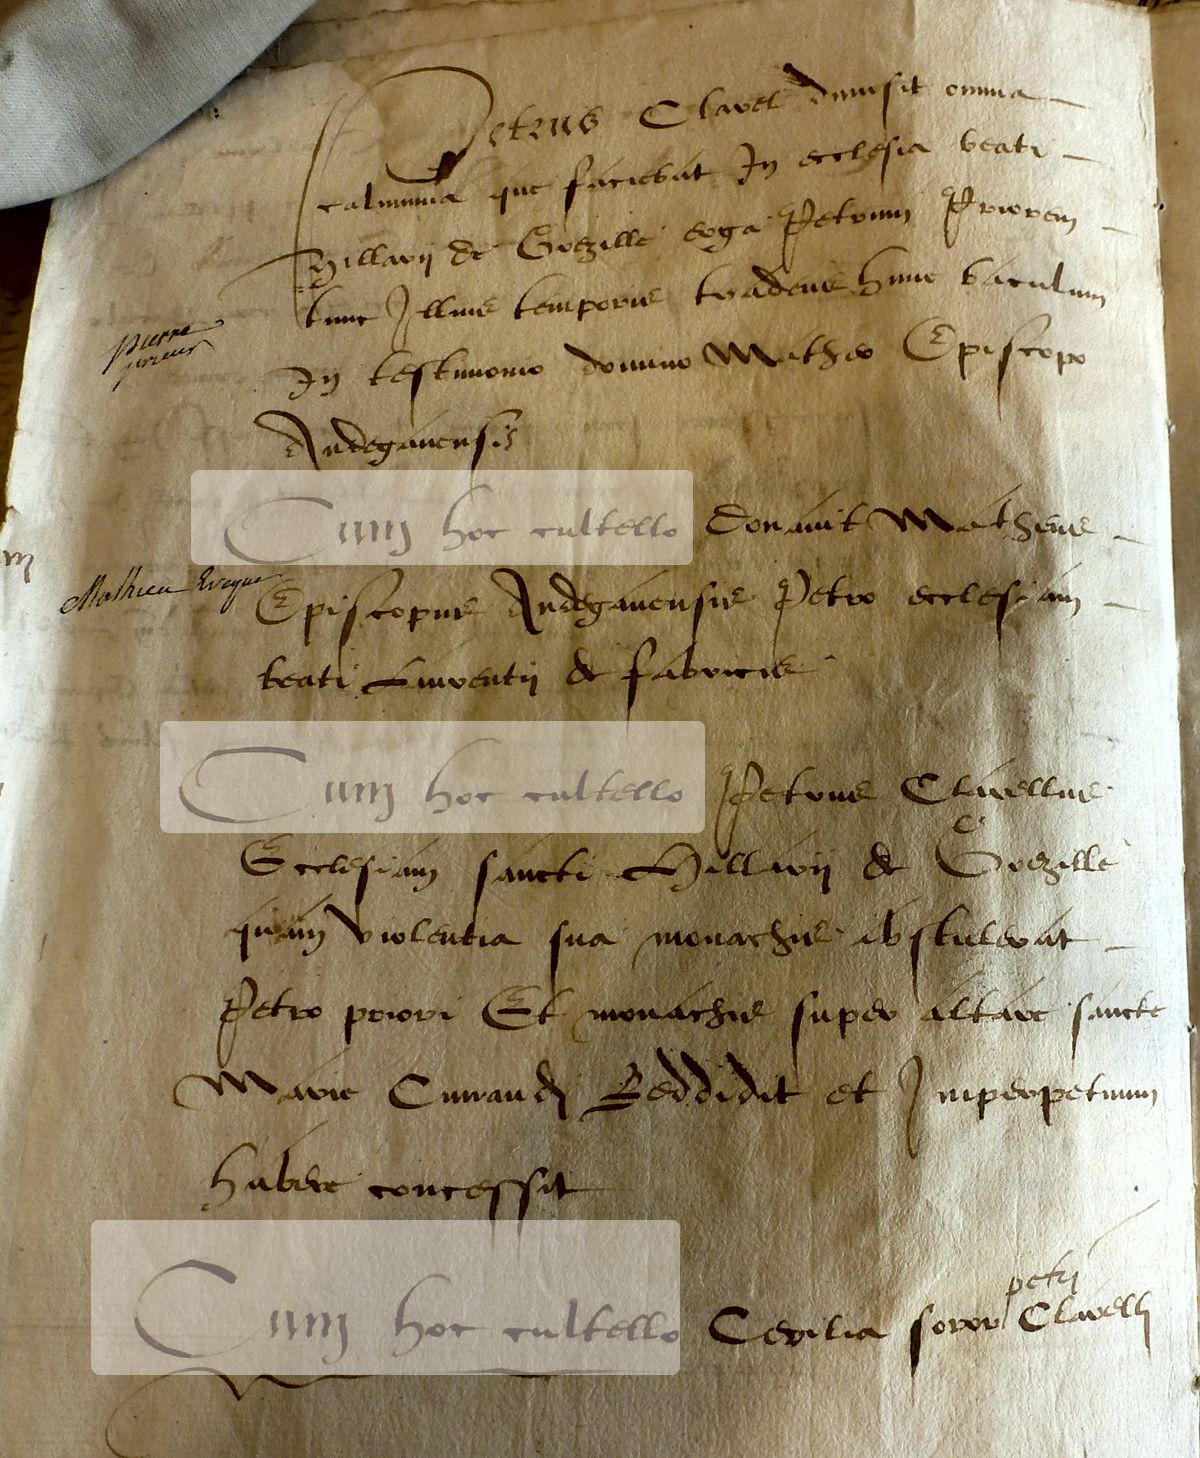 Petrus Clavel dimisit omnia
calumnia que faciebat In ecclesia beati
Hillarij de Grezille erga Petrum Priorem
tunc Illius temporis tradens hunc baculum
In testimonio domino Matheo Episcopo
Andegavensis
Pierre
prieur
Cum hoc cultello Donavit Matheus
Mathieu Eveque
Episcopus Andegavensis Petro ecclesiam
beati Laurentij de fabricis
Cum hoc cultello Petrus Clavellus
Ecclesiam sancti Hillarij de Grezille
quam violentia sua monachis abstulerat
Petro priori Et monachis super altare sancte
Marie Cunaudi Reddidit et Imperpetuum
habere concessit
petri
Cum hoc cultello Cecilia soror Clavelli